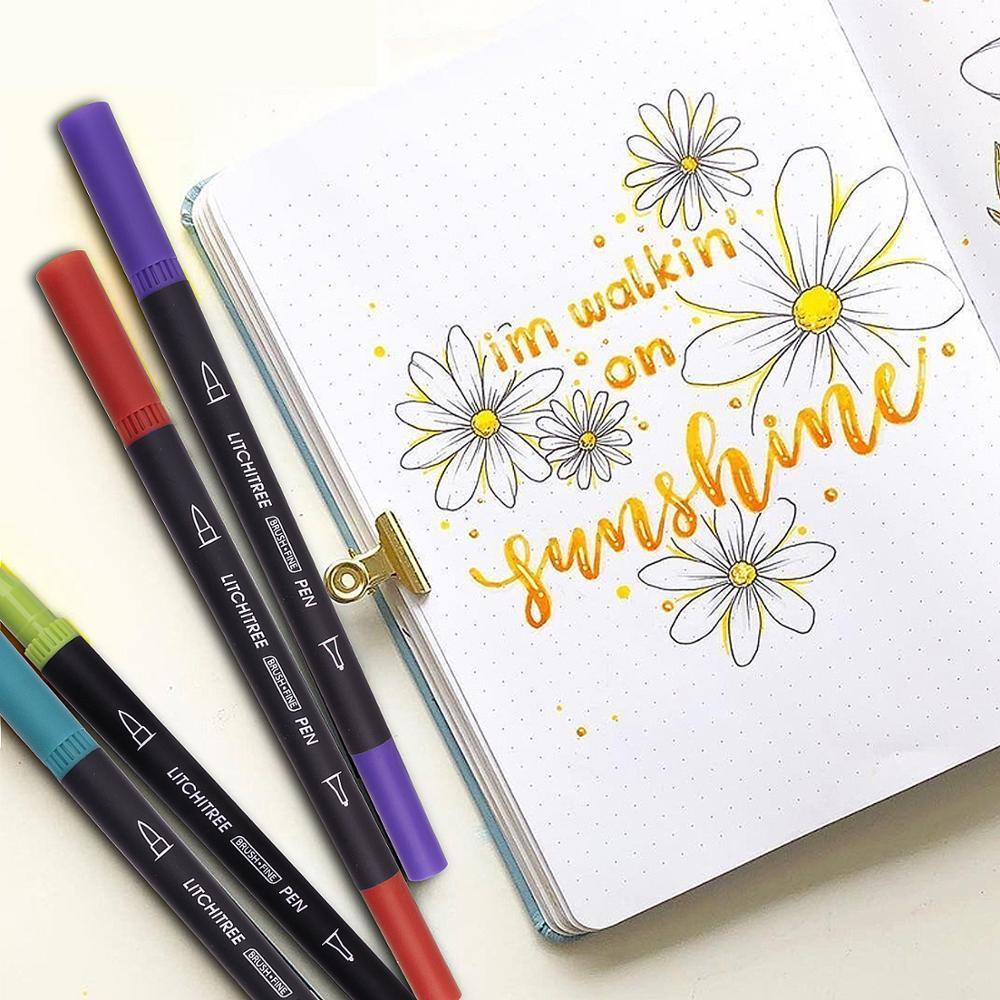 i'm walkin'
on
sunshine
LITCHITREE BRUSH+FINE PEN
LITCHITREE BRUSH+FINE PEN
LITCHITREE BRUSH+FINE PEN
LITCHITREE BRUSH+FINE